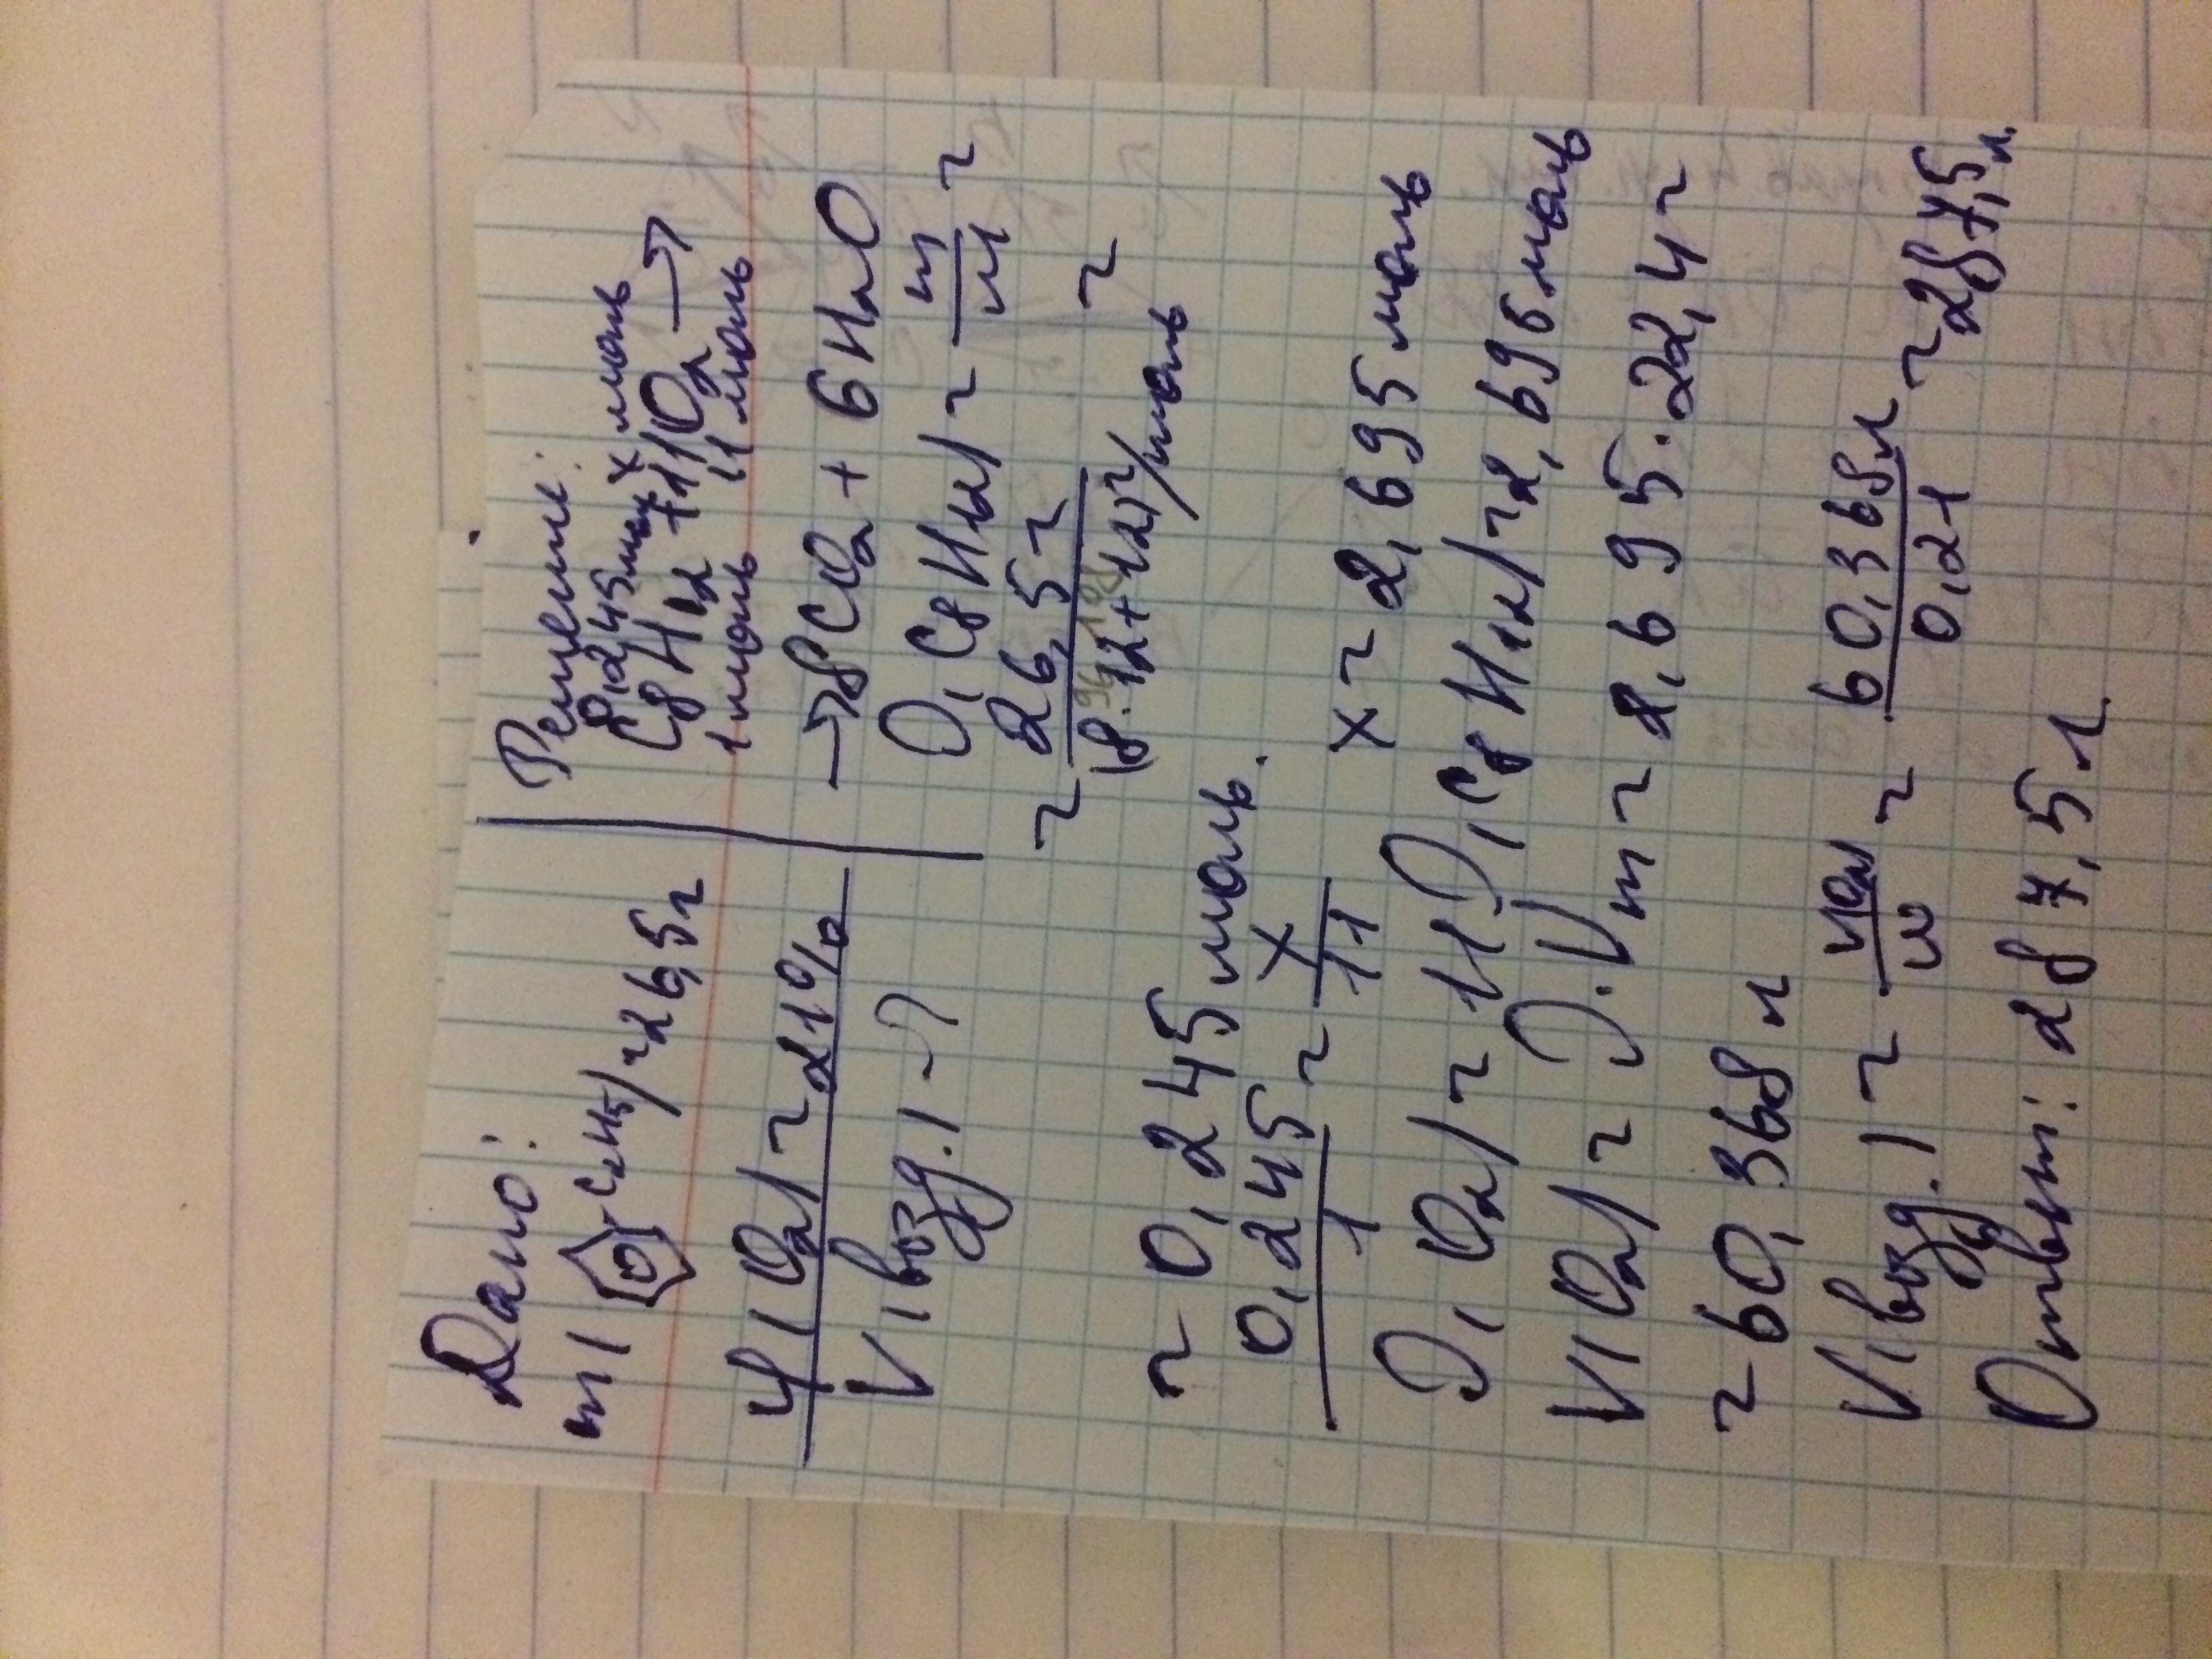 Дано:
m(C₂H₅)=26,5г
φ(O₂)=21%
V(возд.)-?
Решение:
0,245моль x моль
C₈H₁₂+11O₂→
1моль 11моль
→8CO₂+6H₂O
ν(C₈H₁₂)=m/M=
=26,5г/(8·12+12)г/моль=
=0,245моль.
0,245/1=x/11 x=2,695моль
ν(O₂)=11ν(C₈H₁₂)=2,695моль
V(O₂)=ν·Vm=2,695·22,4=
=60,368л
V(возд.)=VO₂/ω=60,368л/0,21=287,5л.
Ответ: 287,5л